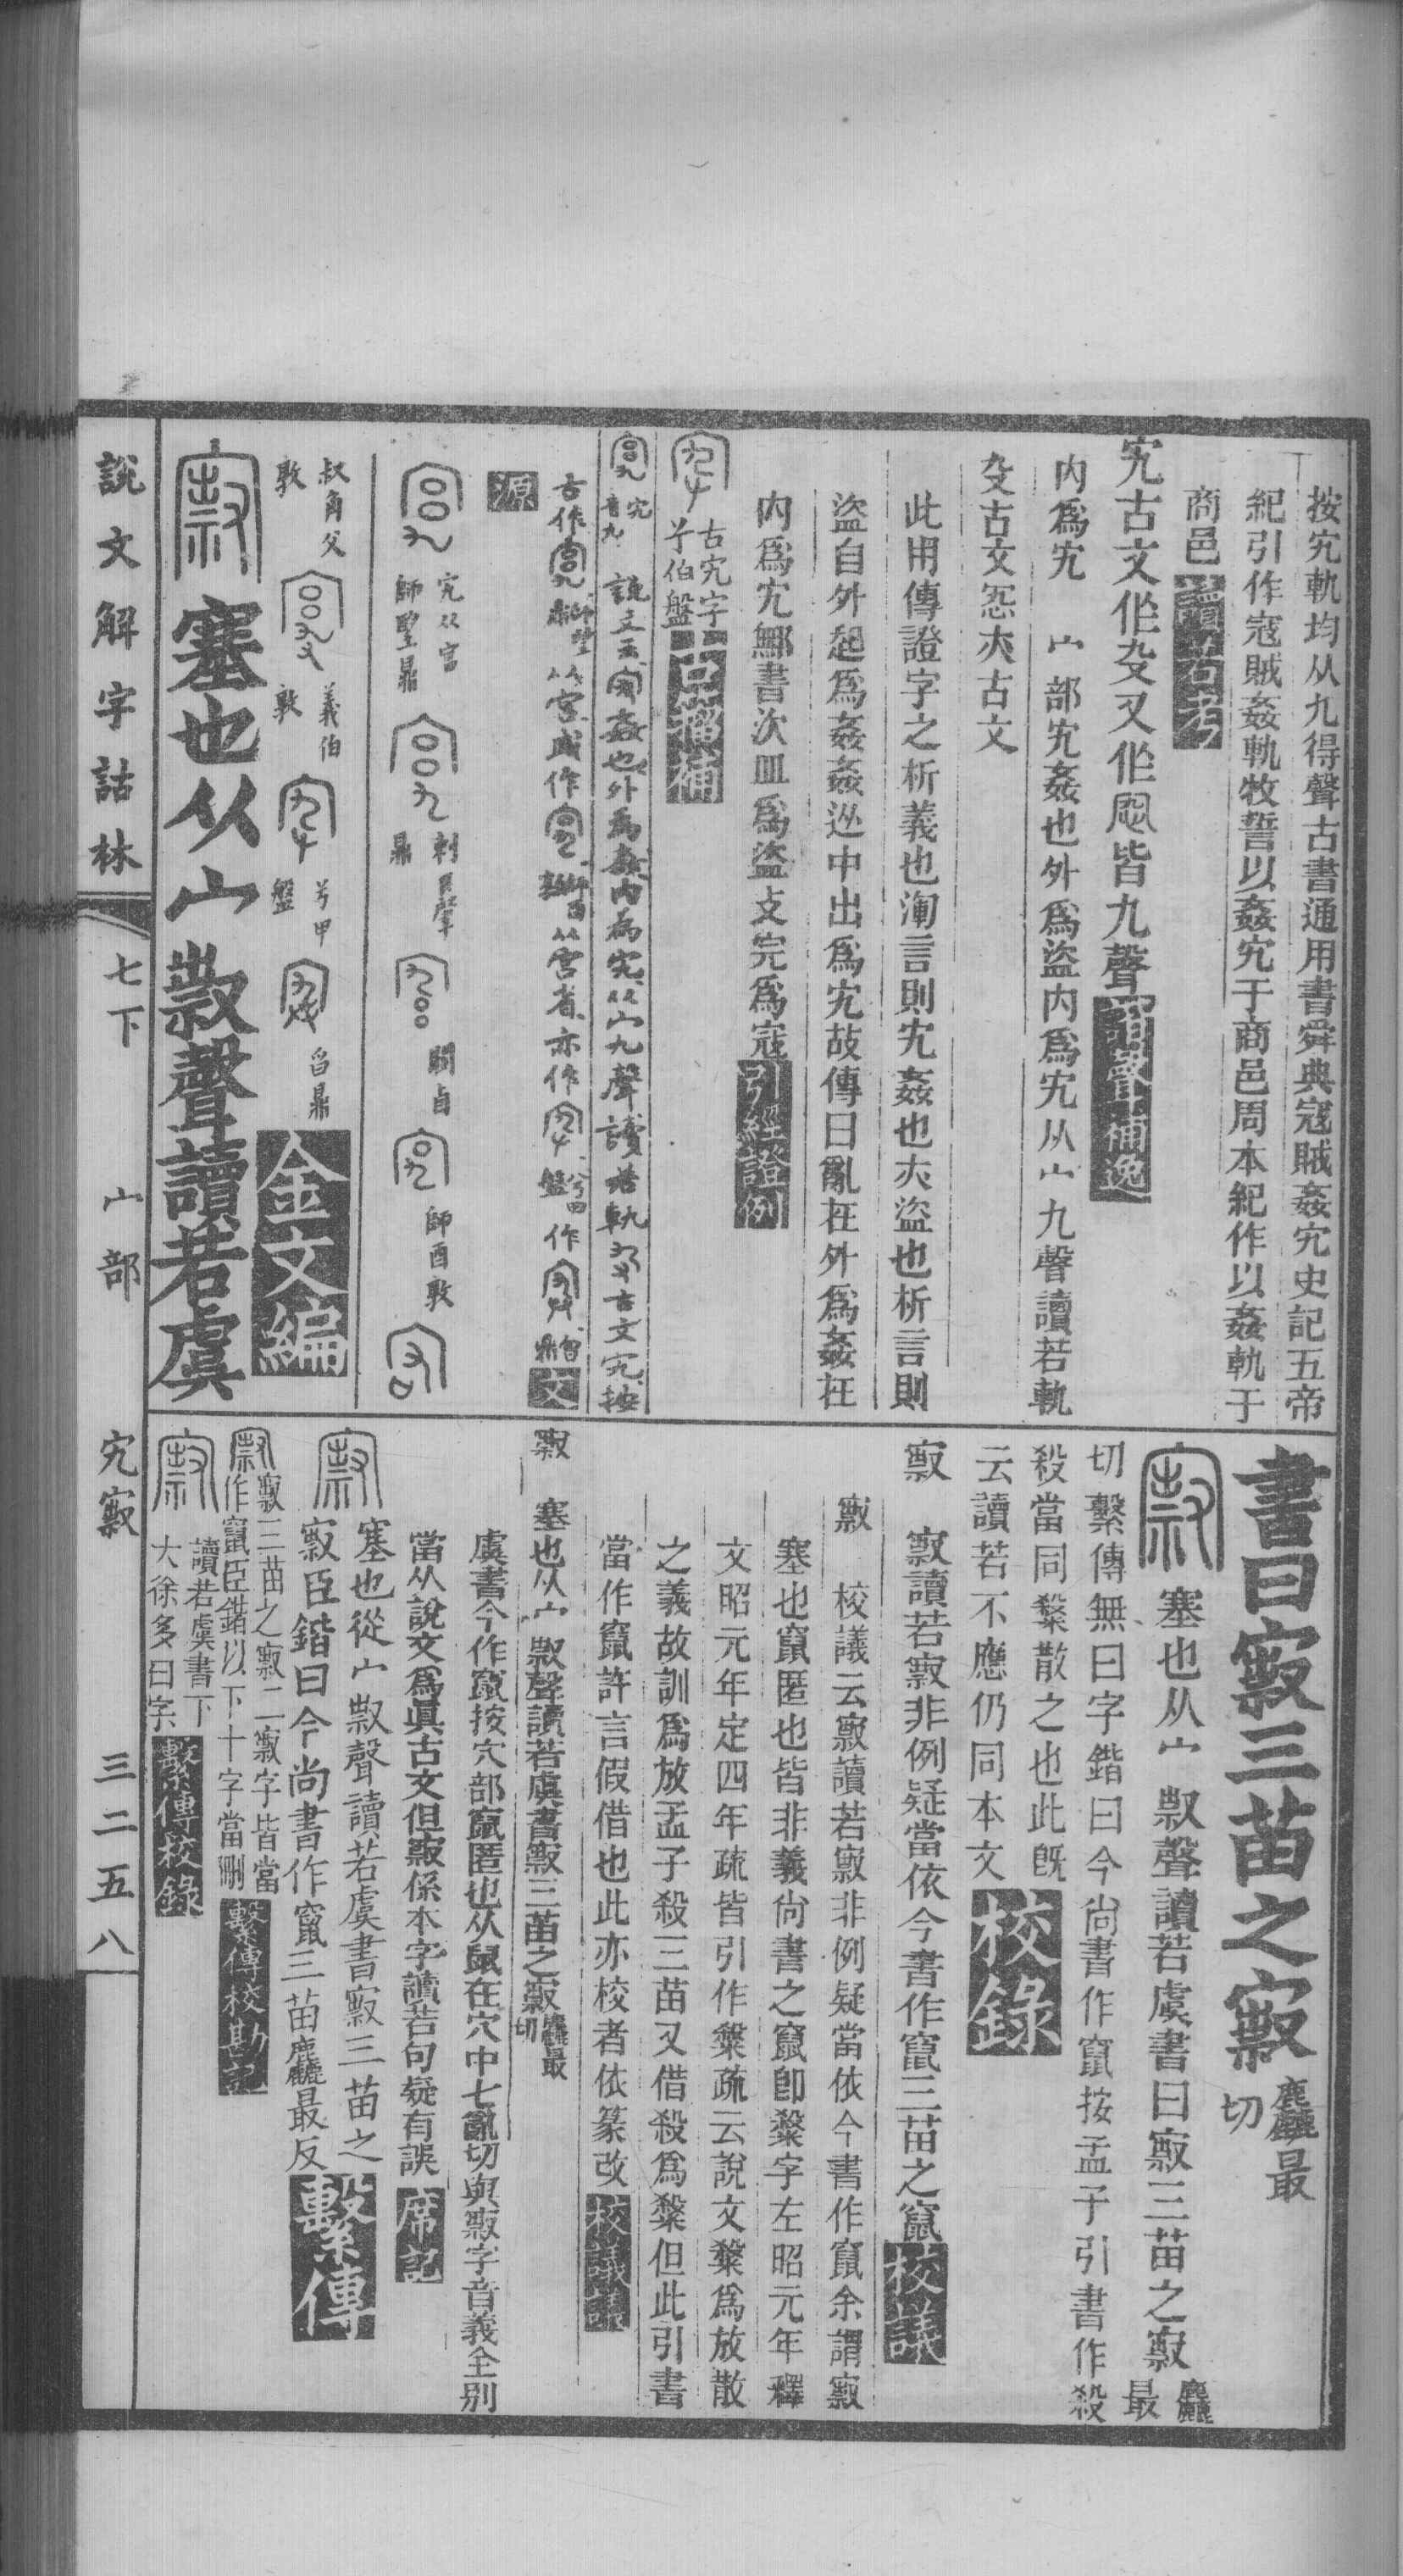 按宄軌均从九得聲古書通用書舜典寇賊姦宄史記五帝
紀引作寇賊姦軌牧誓以姦宄于商邑周本紀作以姦軌于
商邑讀若考
宄古文作㕤又作𢘔皆九聲諧聲補逸
内爲宄 宀部宄姦也外爲盜内爲宄从宀九聲讀若軌
㕤古文𢘔亦古文
此用傳證字之析義也渾言則宄姦也亦盜也析言則
盜自外起爲姦姦巡中出爲宄故傳曰亂在外爲姦在
内爲宄鄦書次皿爲盜攴完爲寇引經證例
古宄字
兮伯盤古籀補
宄
音九 說文云宄姦也外爲姦内爲宄从宀九聲讀若軌 古文宄按
古作 从宮或作 从宮省亦作 作 文
源
宄从宮
師望鼎 刺𢽾
鼎 師酉敦
叔角父
敦 義伯
敦 兮甲
盤 舀鼎 金文編
塞也从宀㪏聲讀若虞
說文解字詁林 七下 宀部 宄䆿 三二五八
書曰㝮三苗之㝮麤最
切
塞也从宀㪏聲讀若虞書曰㝮三苗之㝮麤
最
切繫傳無曰字鍇曰今尙書作竄按孟子引書作殺
殺當同㯔散之也此旣
云讀若不應仍同本文校錄
㝮 㝮讀若㝮非例疑當依今書作竄三苗之竄校議
㝮 校議云㝮讀若㝮非例疑當依今書作竄余謂㝮
塞也竄匿也皆非義尙書之竄卽㯔字左昭元年釋
文昭元年定四年疏皆引作㯔疏云說文㯔爲放散
之義故訓爲放孟子殺三苗又借殺爲㯔但此引書
當作竄許言假借也此亦校者依篆改校議議
㝮 塞也从宀㪏聲讀若虞書㝮三苗之㝮麤最
切
虞書今作竄按穴部竄匿也从鼠在穴中七亂切與㝮字音義全別
當从說文爲眞古文但㝮係本字讀若句疑有誤席記
塞也從宀㪏聲讀若虞書㝮三苗之
㝮臣鍇曰今尚書作竄三苗麤最反繫傳
㝮三苗之㝮二㝮字皆當
作竄臣鍇以下十字當刪繫傳校勘記
讀若虞書下
大徐多曰字繫傳校錄